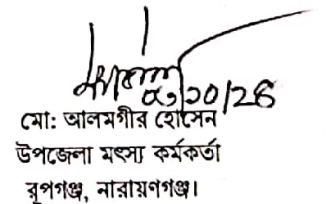 মো: আলমগীর হোসেন
উপজেলা মৎস্য কর্মকর্তা
রূপগঞ্জ, নারায়ণগঞ্জ।